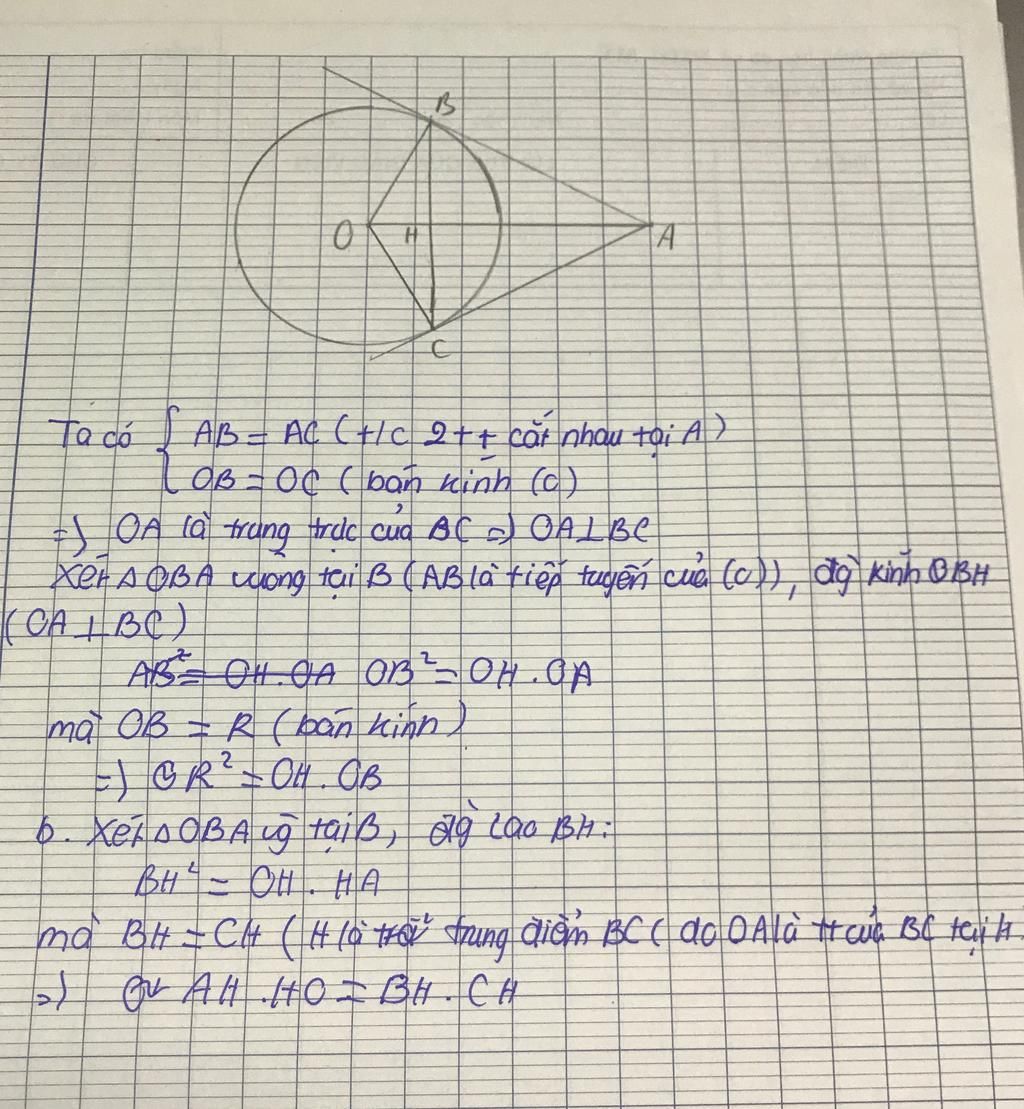 B
O H A
C
Ta có { AB = AC (t/c 2 tt cắt nhau tại A)
OB = OC (bán kính (O)
=) OA là trung trực của BC =) OA⊥BC
Xét Δ OBA vuông tại B (AB là tiếp tuyến của (O)), đg kính BH
(OA⊥BC)
AB² = OH.OA OB² = OH.OA
mà OB = R (bán kính)
=) R² = OH.OB
b. Xét Δ OBA vg tại B, đg cao BH:
BH² = OH.HA
mà BH = CH (H là trung điểm BC (do OA là tt của BC tại H
=) AH.HO = BH.CH